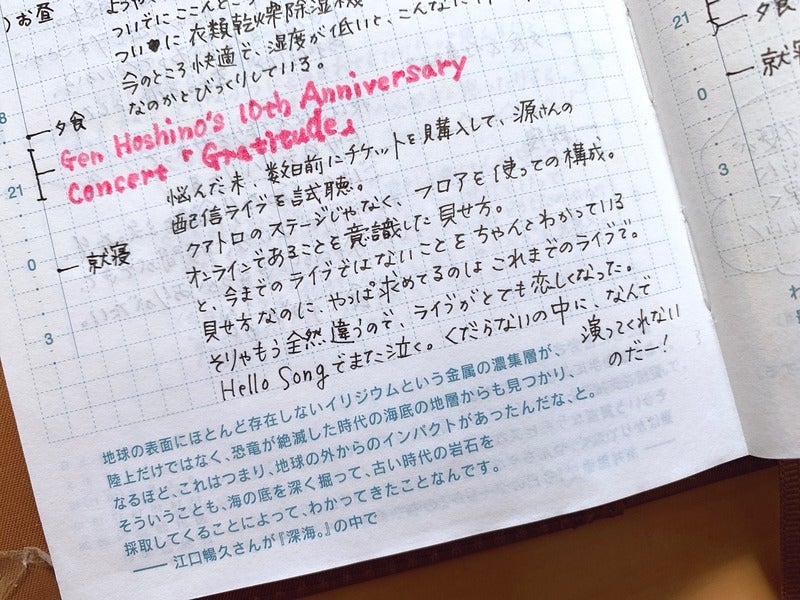 お昼
ついでにここんと
ついに衣類乾燥除湿機
今のところ快適で、湿度が低いと、こんなに
なのかとびっくりしている。
8
夕食
Gen Hoshino's 10th Anniversary
Concert『Gratitude』
21
悩んだ末、数日前にチケットを購入して、源さんの
配信ライブを試聴。
クアトロのステージじゃなく、フロアを使っての構成。
オンラインであることを意識した見せ方。
0
就寝
と、今までのライブではないことをちゃんとわかっている
見せ方なのに、やっぱ求めてるのはこれまでのライブで。
3
そりゃもう全然違うので、ライブがとても恋しくなった。
Hello Songでまた泣く。くだらないの中に、なんで
演ってくれない
のだー!
地球の表面にほとんど存在しないイリジウムという金属の濃集層が、
陸上だけではなく、恐竜が絶滅した時代の海底の地層からも見つかり、
なるほど、これはつまり、地球の外からのインパクトがあったんだな、と。
そういうことも、海の底を深く掘って、古い時代の岩石を
採取してくることによって、わかってきたことなんです。
――江口暢久さんが『深海。』の中で
21
夕食
0
就寝
3